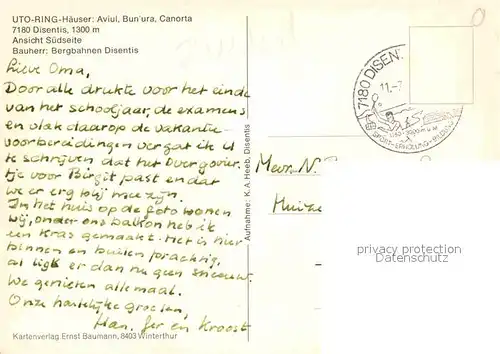 UTO-RING-Häuser: Aviul, Bun'ura, Canorta
7180 Disentis, 1300 m
Ansicht Südseite
Bauherr: Bergbahnen Disentis
Lieve Oma,
Door alle drukte voor het einde
van het schooljaar, de examens
en vlak daarop de vakantie-
voorbereidingen vergat ik U
te schrijven dat het overgooier-
tje voor Birgit past en dat
we er erg blij mee zijn.
In het huis op de foto wonen
wij, onder ons balkon heb ik
een kras gemaakt. Het is hier
binnen en buiten prachtig,
al ligt er dan nu geen sneeuw.
We genieten allemaal.
Onze hartelijke groeten,
Han, Ger en Kroost
Kartenverlag Ernst Baumann, 8403 Winterthur
Aufnahme: K. A. Heeb, Disentis
7180 DISEN
11.-7
SPORT-ERHOLUNG
Mevr. N.
Huize
privacy protection